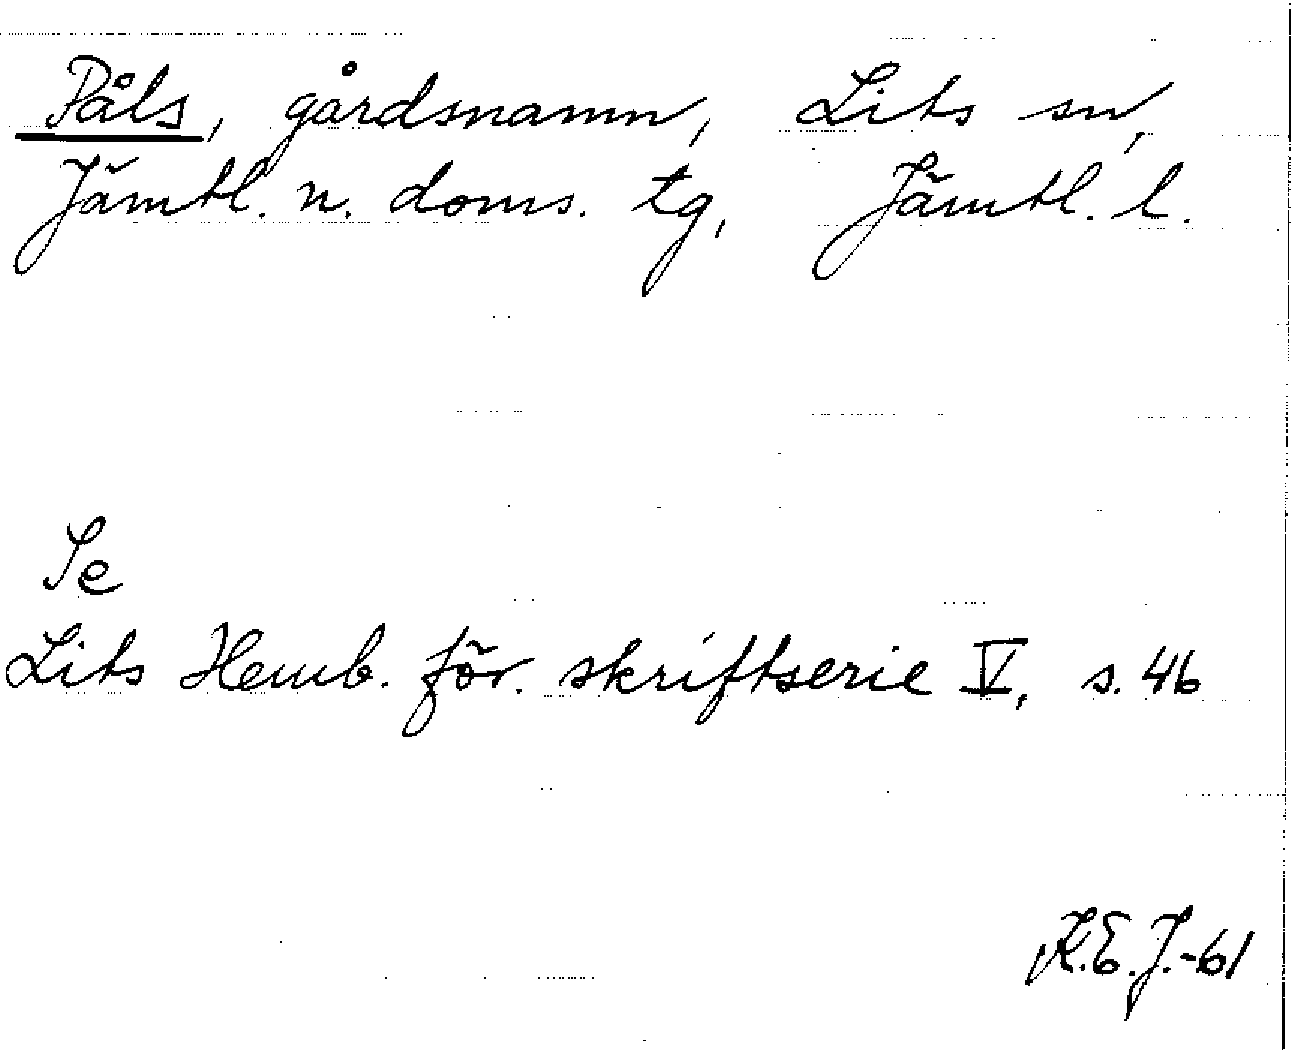 Påls, gårdsnamn, Lits sn,
Jämtl. n. doms. tg, Jämtl. l.
Se
Lits Hemb. för. skriftserie V, s. 46
K.E.J.-61